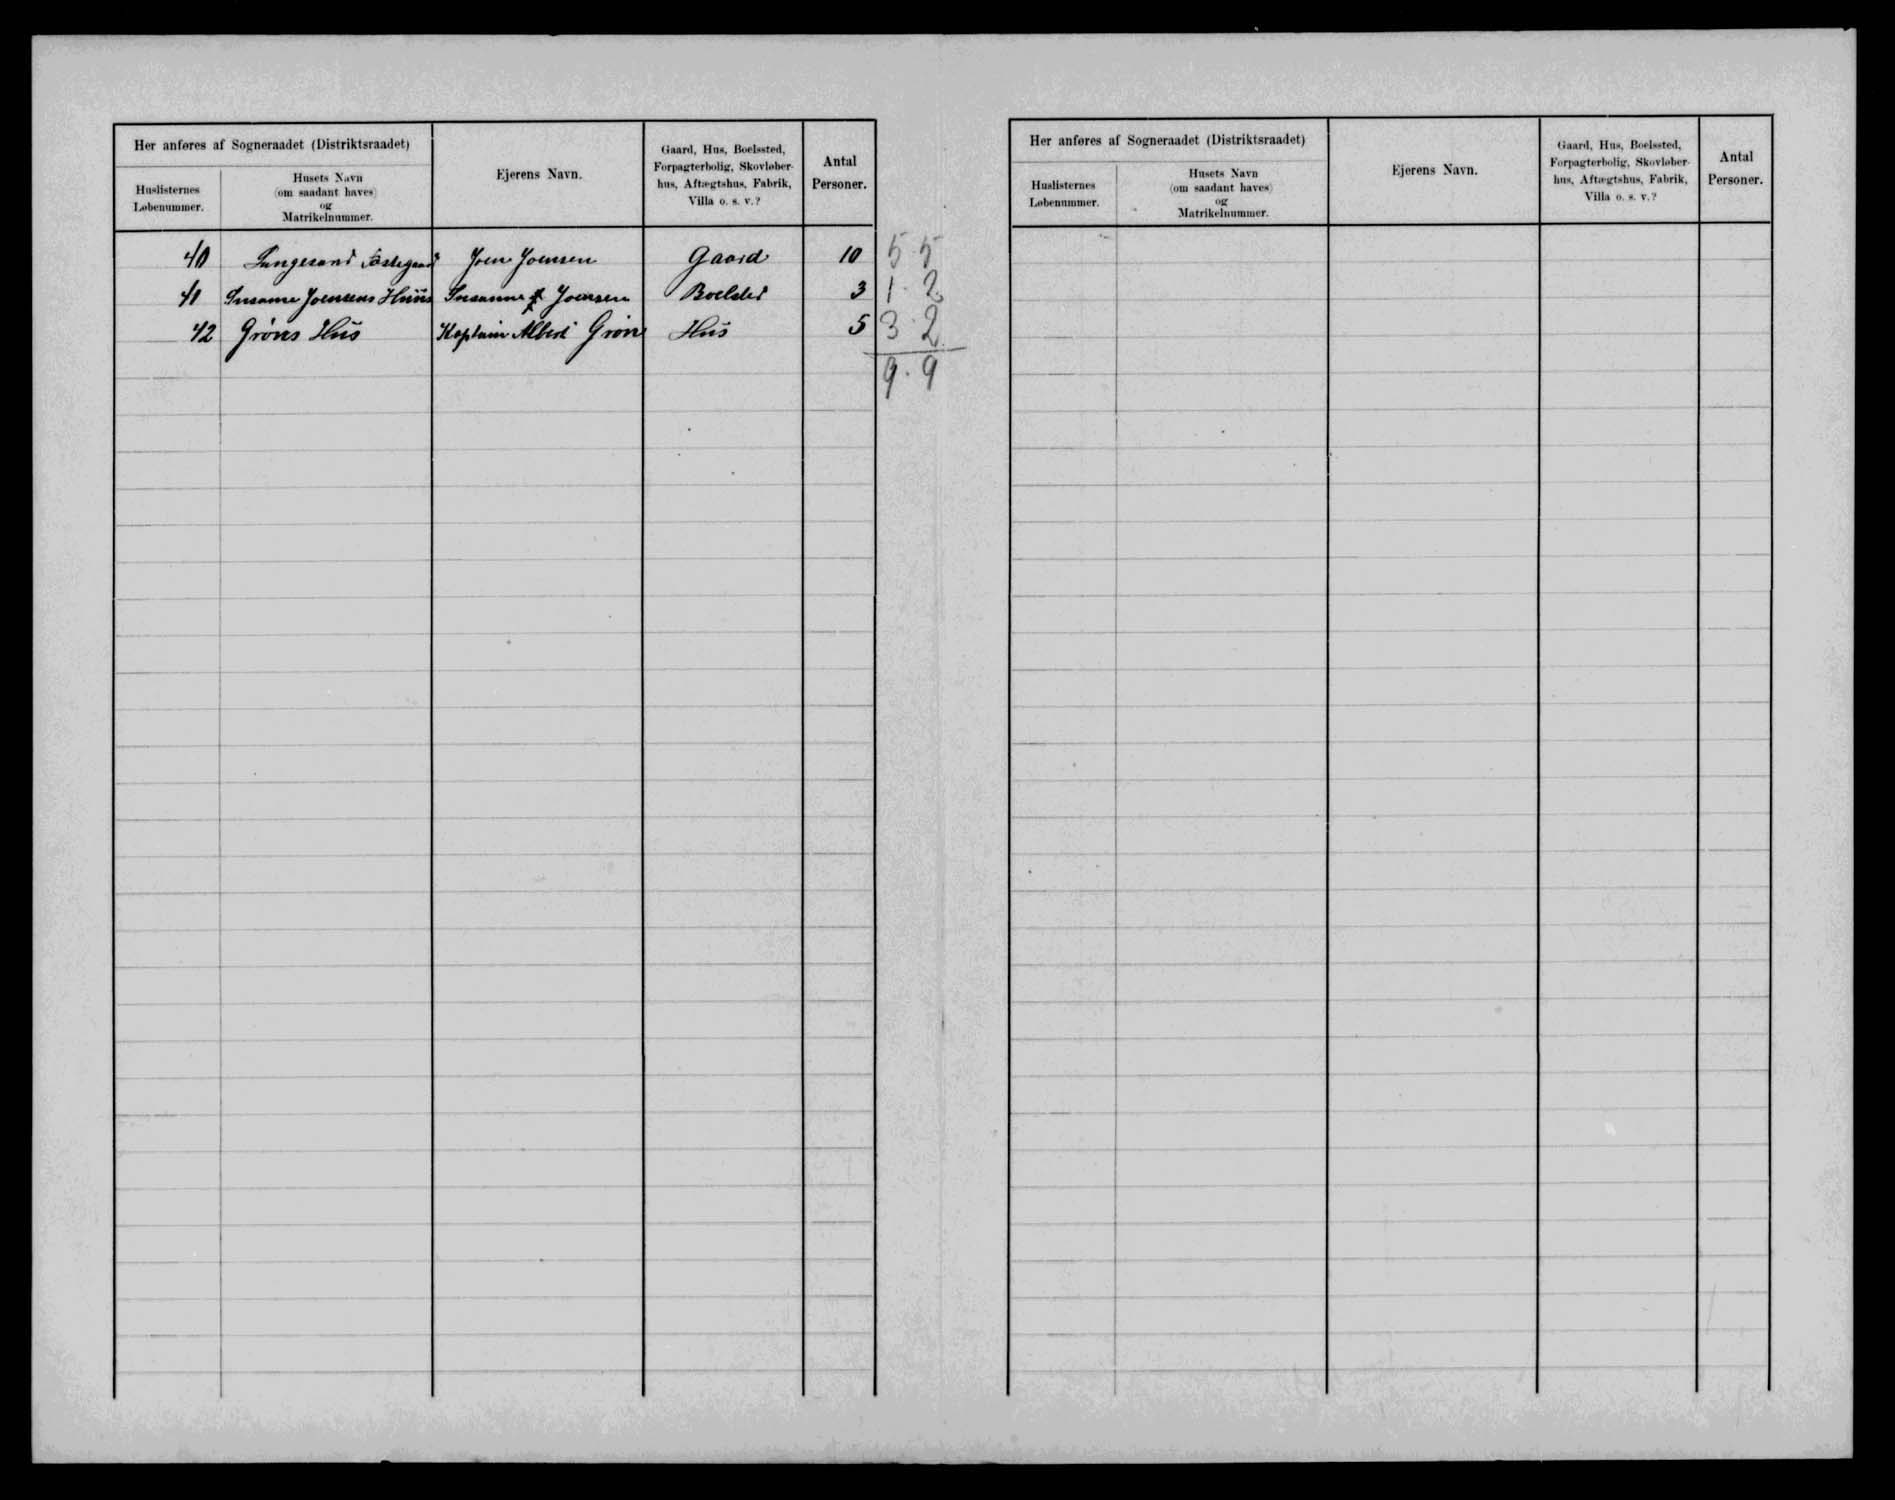 Her anføres af Sogneraadet (Distriktsraadet)
Huslisternes
Løbenummer.
Husets Navn
(om saadant haves)
og
Matrikelnummer.
Ejerens Navn.
Gaard, Hus, Boelssted,
Forpagterbolig, Skovløber-
hus, Aftægtshus, Fabrik,
Villa o. s. v.?
Antal
Personer.
40 Joen Joensen Gaard 10 5 5
41 Susanne Joensens Huus Susanne Joensen Boelsted 3 1. 2
42 Gröns Hus Kaptain Albert Grön Hus 5 3. 2
9. 9
Her anføres af Sogneraadet (Distriktsraadet)
Huslisternes
Løbenummer.
Husets Navn
(om saadant haves)
og
Matrikelnummer.
Ejerens Navn.
Gaard, Hus, Boelssted,
Forpagterbolig, Skovløber-
hus, Aftægtshus, Fabrik,
Villa o. s. v.?
Antal
Personer.